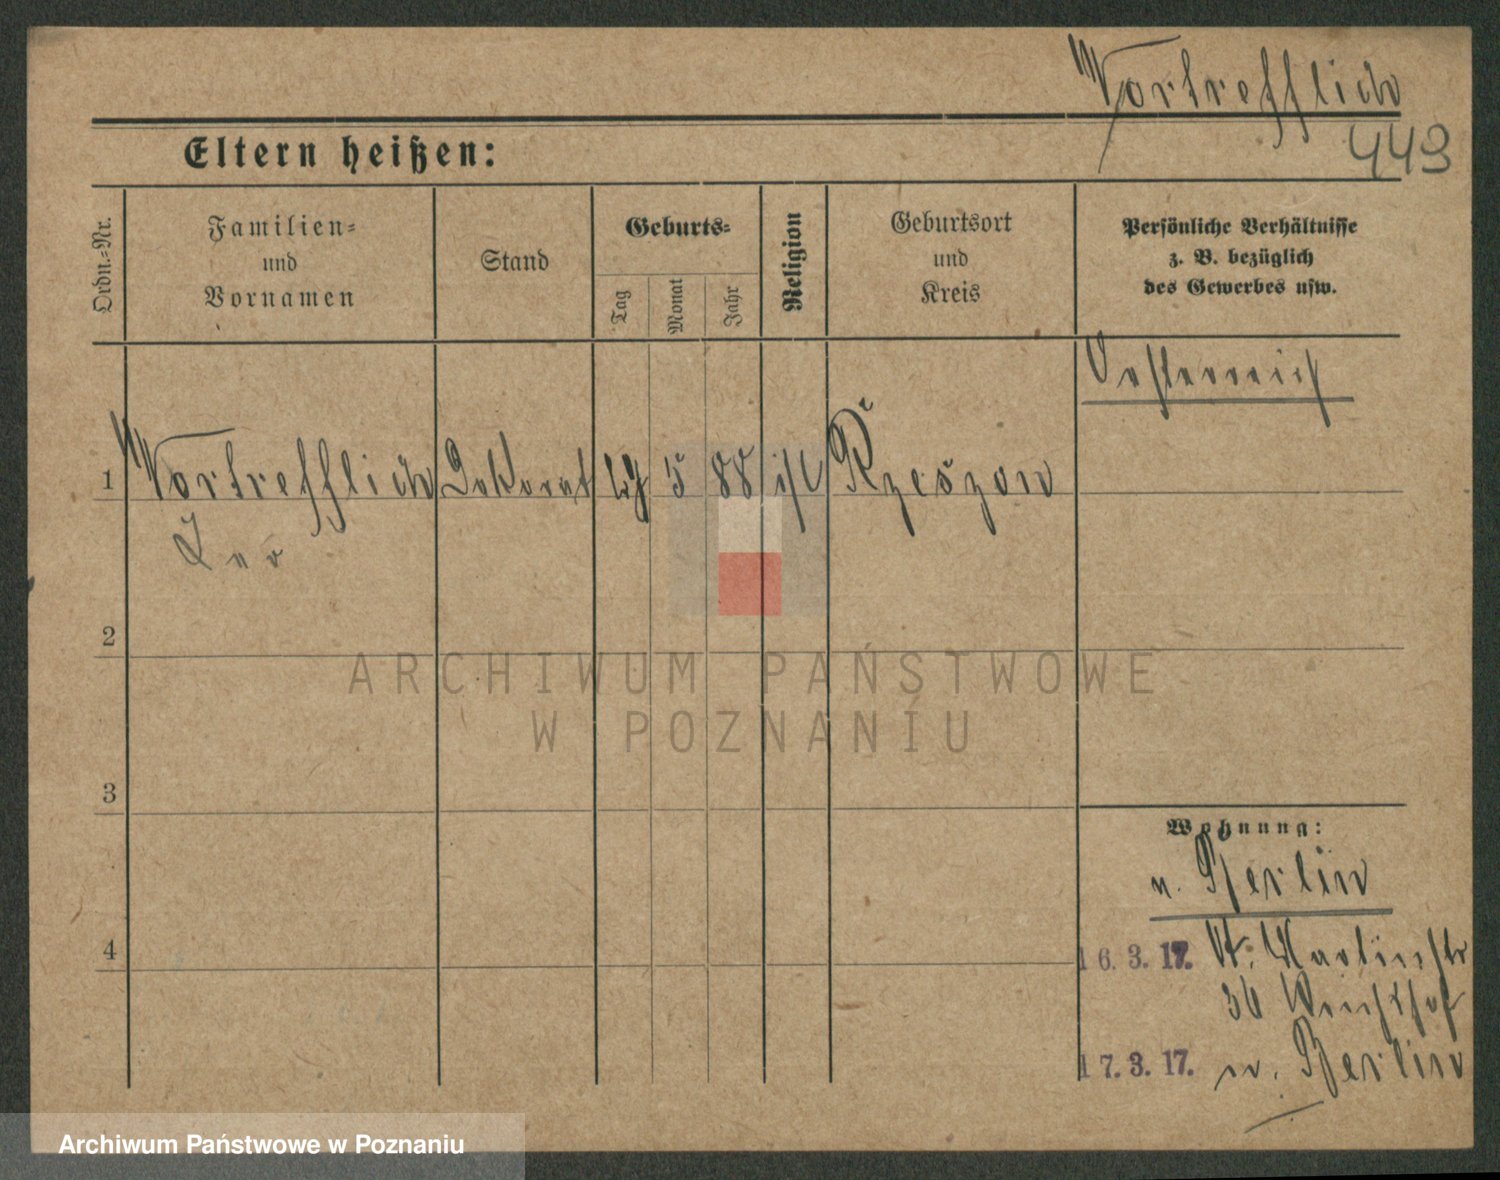 Vortrefflich
449
Eltern heißen:
Ordn.-Nr.
Familien-
und
Vornamen
Stand
Geburts-
Tag
Monat
Jahr
Religion
Geburtsort
und
Kreis
Persönliche Verhältnisse
z. B. bezüglich
des Gewerbes usw.
Oesterreich
1
Vortrefflich
5
88
Rzeszow
2
ARCHIWUM PAŃSTWOWE
W POZNANIU
3
Wohnung:
n. Berlin
4
16. 3. 17. St. Martinstr
36
17. 3. 17. n. Berlin
Archiwum Państwowe w Poznaniu